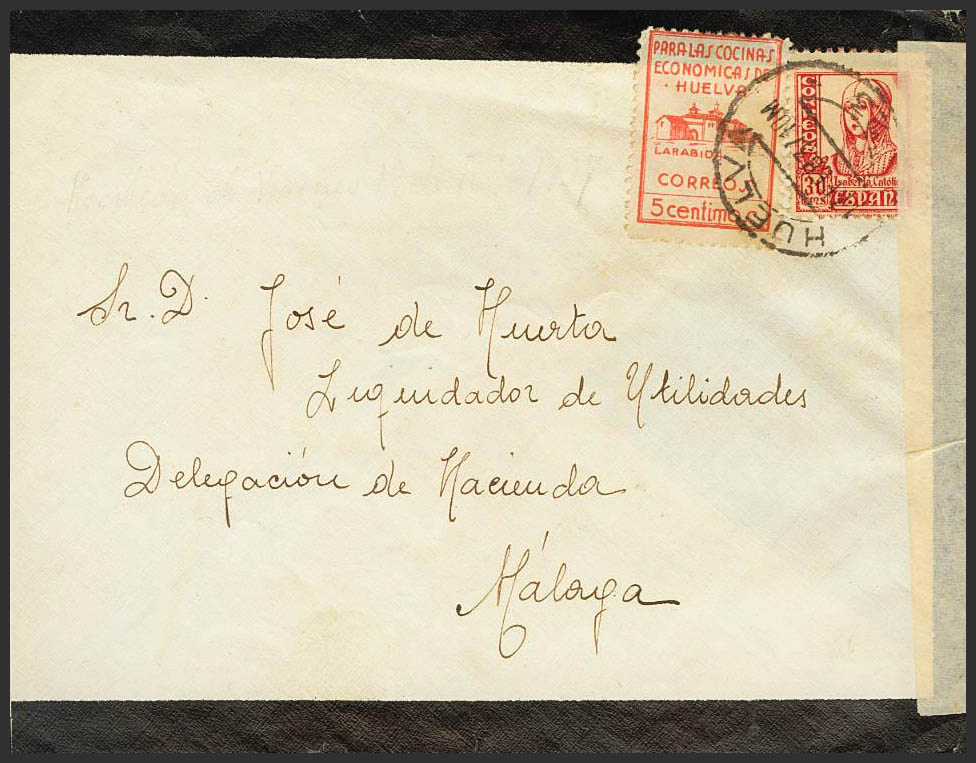 PARA LAS COCINAS
ECONOMICAS DE
HUELVA
LA RABIDA
CORREOS
5 centimos
CORREOS
30
CTMS
Isabel la Catól
ESPAÑ
HUELVA
Sr. D. José de Huerta
Liquidador de Utilidades
Delegación de Hacienda
Málaga